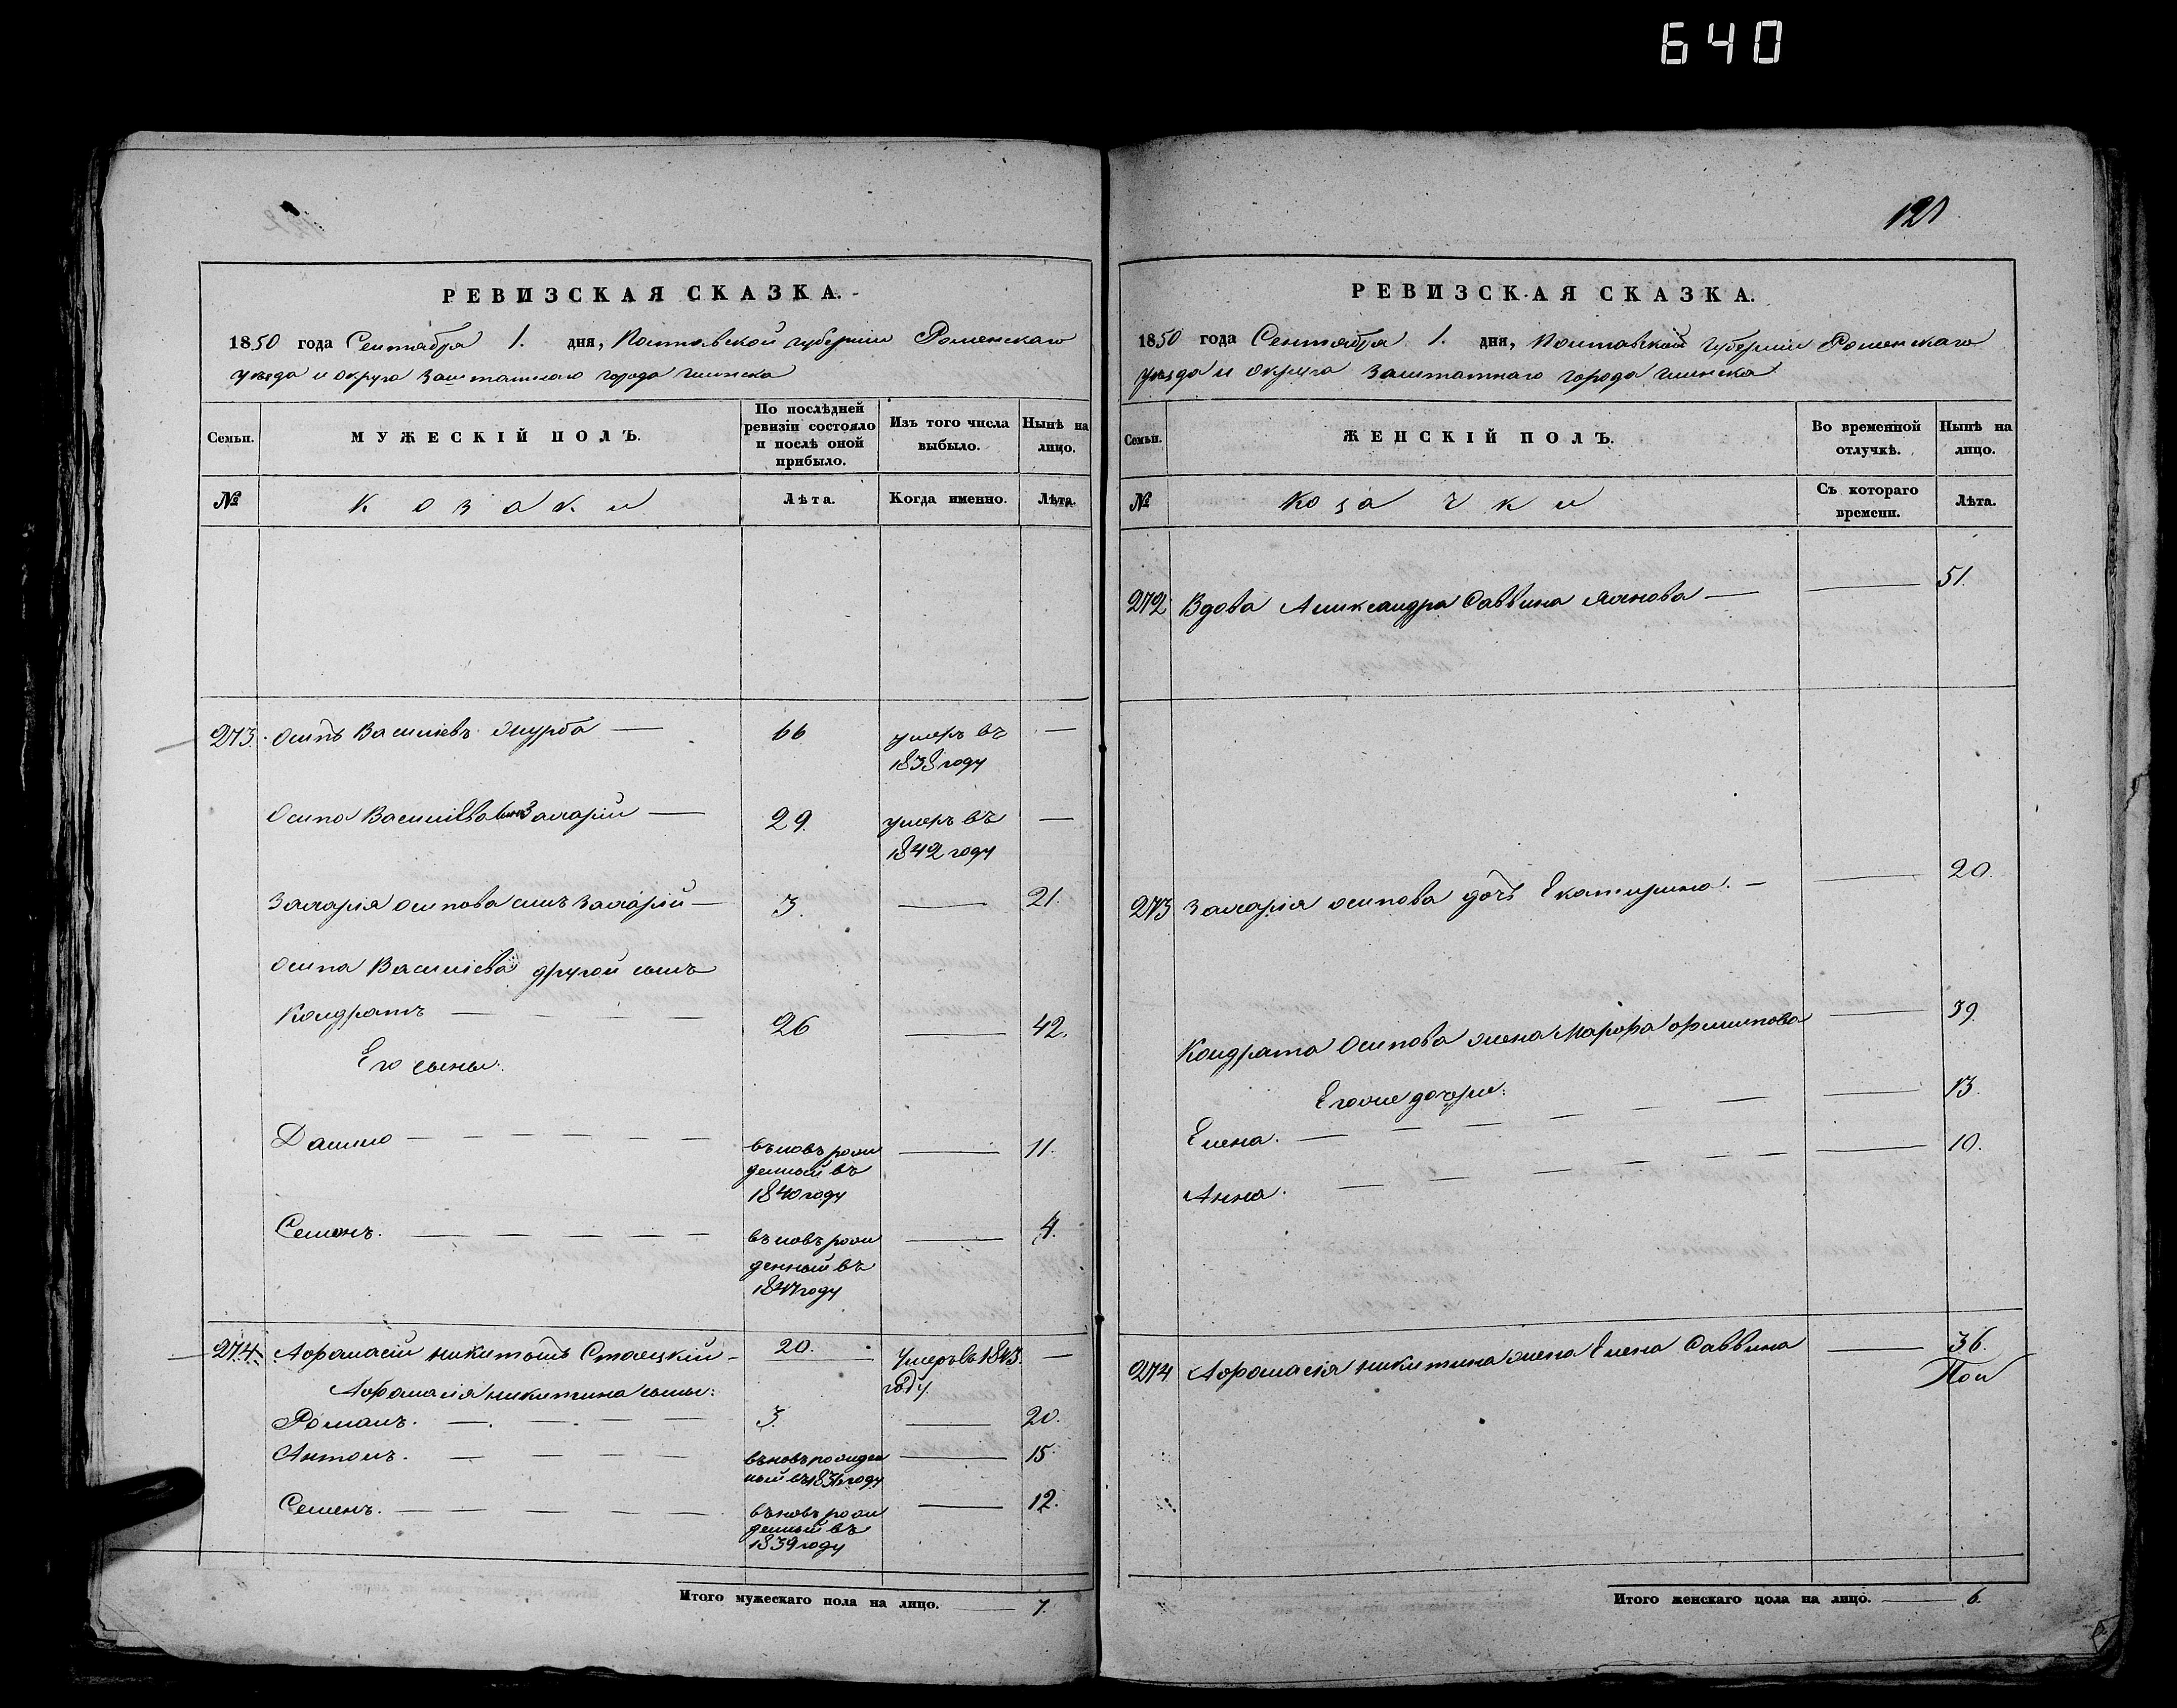 640
РЕВИЗСКАЯ СКАЗКА.
1850 года Сентября 1. дня, Полтавской губерніи Роменскаго
уезда и округа Заштатнаго города Глинска
Семьи.
МУЖЕСКІЙ ПОЛЪ.
По послѣдней ревизіи состояло и послѣ оной прибыло.
Изъ того числа выбыло.
Нынѣ на лицо.
№
Козаки
Лѣта.
Когда именно.
Лѣта.
273. Осипъ Васильевъ 66 умеръ въ 1838 году —
Осипа Васильева сынъ Захарій — 29. умеръ въ 1842 году —
Захарія осипова сынъ Захарій — 3. — 21.
Осипа Васильева другой сынъ
Кондратъ — 26 — 42.
Его сыны:
Данило — въновь рожденный въ 1840 году — 11.
Семенъ. — въновь рожденный въ 1847 году — 4.
274. Афанасій Никитовъ — 20. Умеръ въ 1843. году —
Афанасія никитина сыны:
Романъ. — 3. — 20.
Антонъ. — въновь рожденный въ 1836 году — 15.
Семенъ. — въновь рожденный въ 1839 году — 12.
Итого мужескаго пола на лицо. — 7.
121
РЕВИЗСКАЯ СКАЗКА.
1850 года Сентября 1. дня, Полтавской губерніи Роменскаго
уезда и округа Заштатнаго города Глинска
Семьи.
ЖЕНСКІЙ ПОЛЪ.
Во временной отлучкѣ.
Нынѣ на лицо.
№
Козачки
Съ котораго времени.
Лѣта.
272 Вдова Александра Саввина — — 51.
273 Захарія осипова дочь Екатерина. — — 20.
Кондрата Осипова жена Марфа филипова — 39.
Его же дочери:
Елена. — — 13.
Анна. — — 10.
274 Афанасія никитина жена Елена Саввина — 36.
Итого женскаго пола на лицо. — 6.